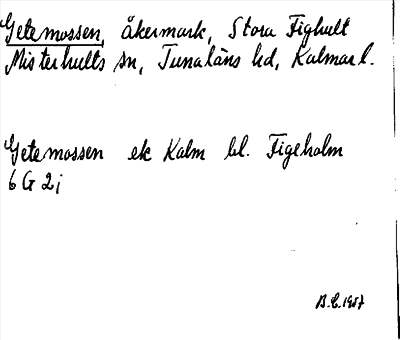 Getemossen, åkermark, Stora Fighult
Misterhults sn, Tunaläns hd, Kalmar l.
Getemossen ek Kalm bl. Figeholm
6 G 2 i
B.E. 1957